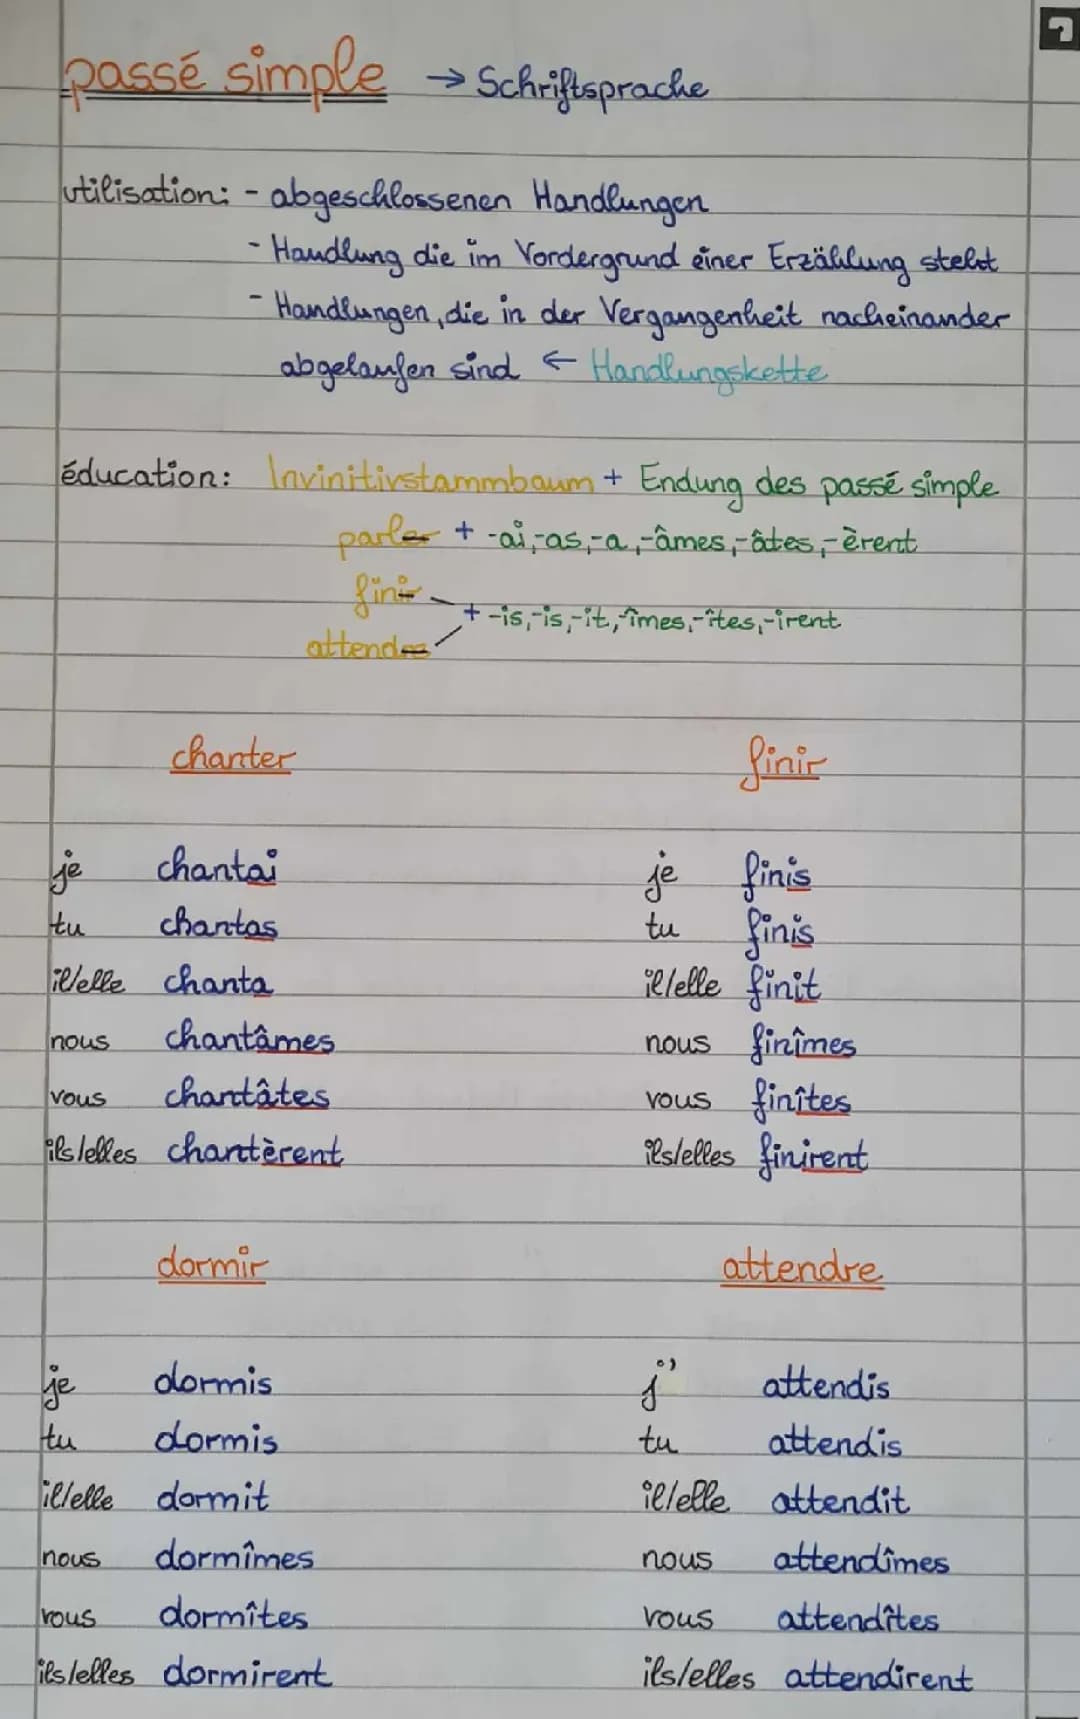 passé simple → Schriftsprache
utilisation: - abgeschlossenen Handlungen
- Handlung die im Vordergrund einer Erzählung steht
- Handlungen, die in der Vergangenheit nacheinander
abgelaufen sind ← Handlungskette
éducation: Invinitivstammbaum + Endung des passé simple
parler + -ai,-as,-a,-âmes,-âtes,-èrent
finir
+ -is,-is,-it,-îmes,-îtes,-irent
attendre
chanter
je chantai
tu chantas
il/elle chanta
nous chantâmes
vous chantâtes
ils/elles chantèrent
finir
je finis
tu finis
il/elle finit
nous finîmes
vous finîtes
ils/elles finirent
dormir
je dormis
tu dormis
il/elle dormit
nous dormîmes
vous dormîtes
ils/elles dormirent
attendre
j' attendis
tu attendis
il/elle attendit
nous attendîmes
vous attendîtes
ils/elles attendirent